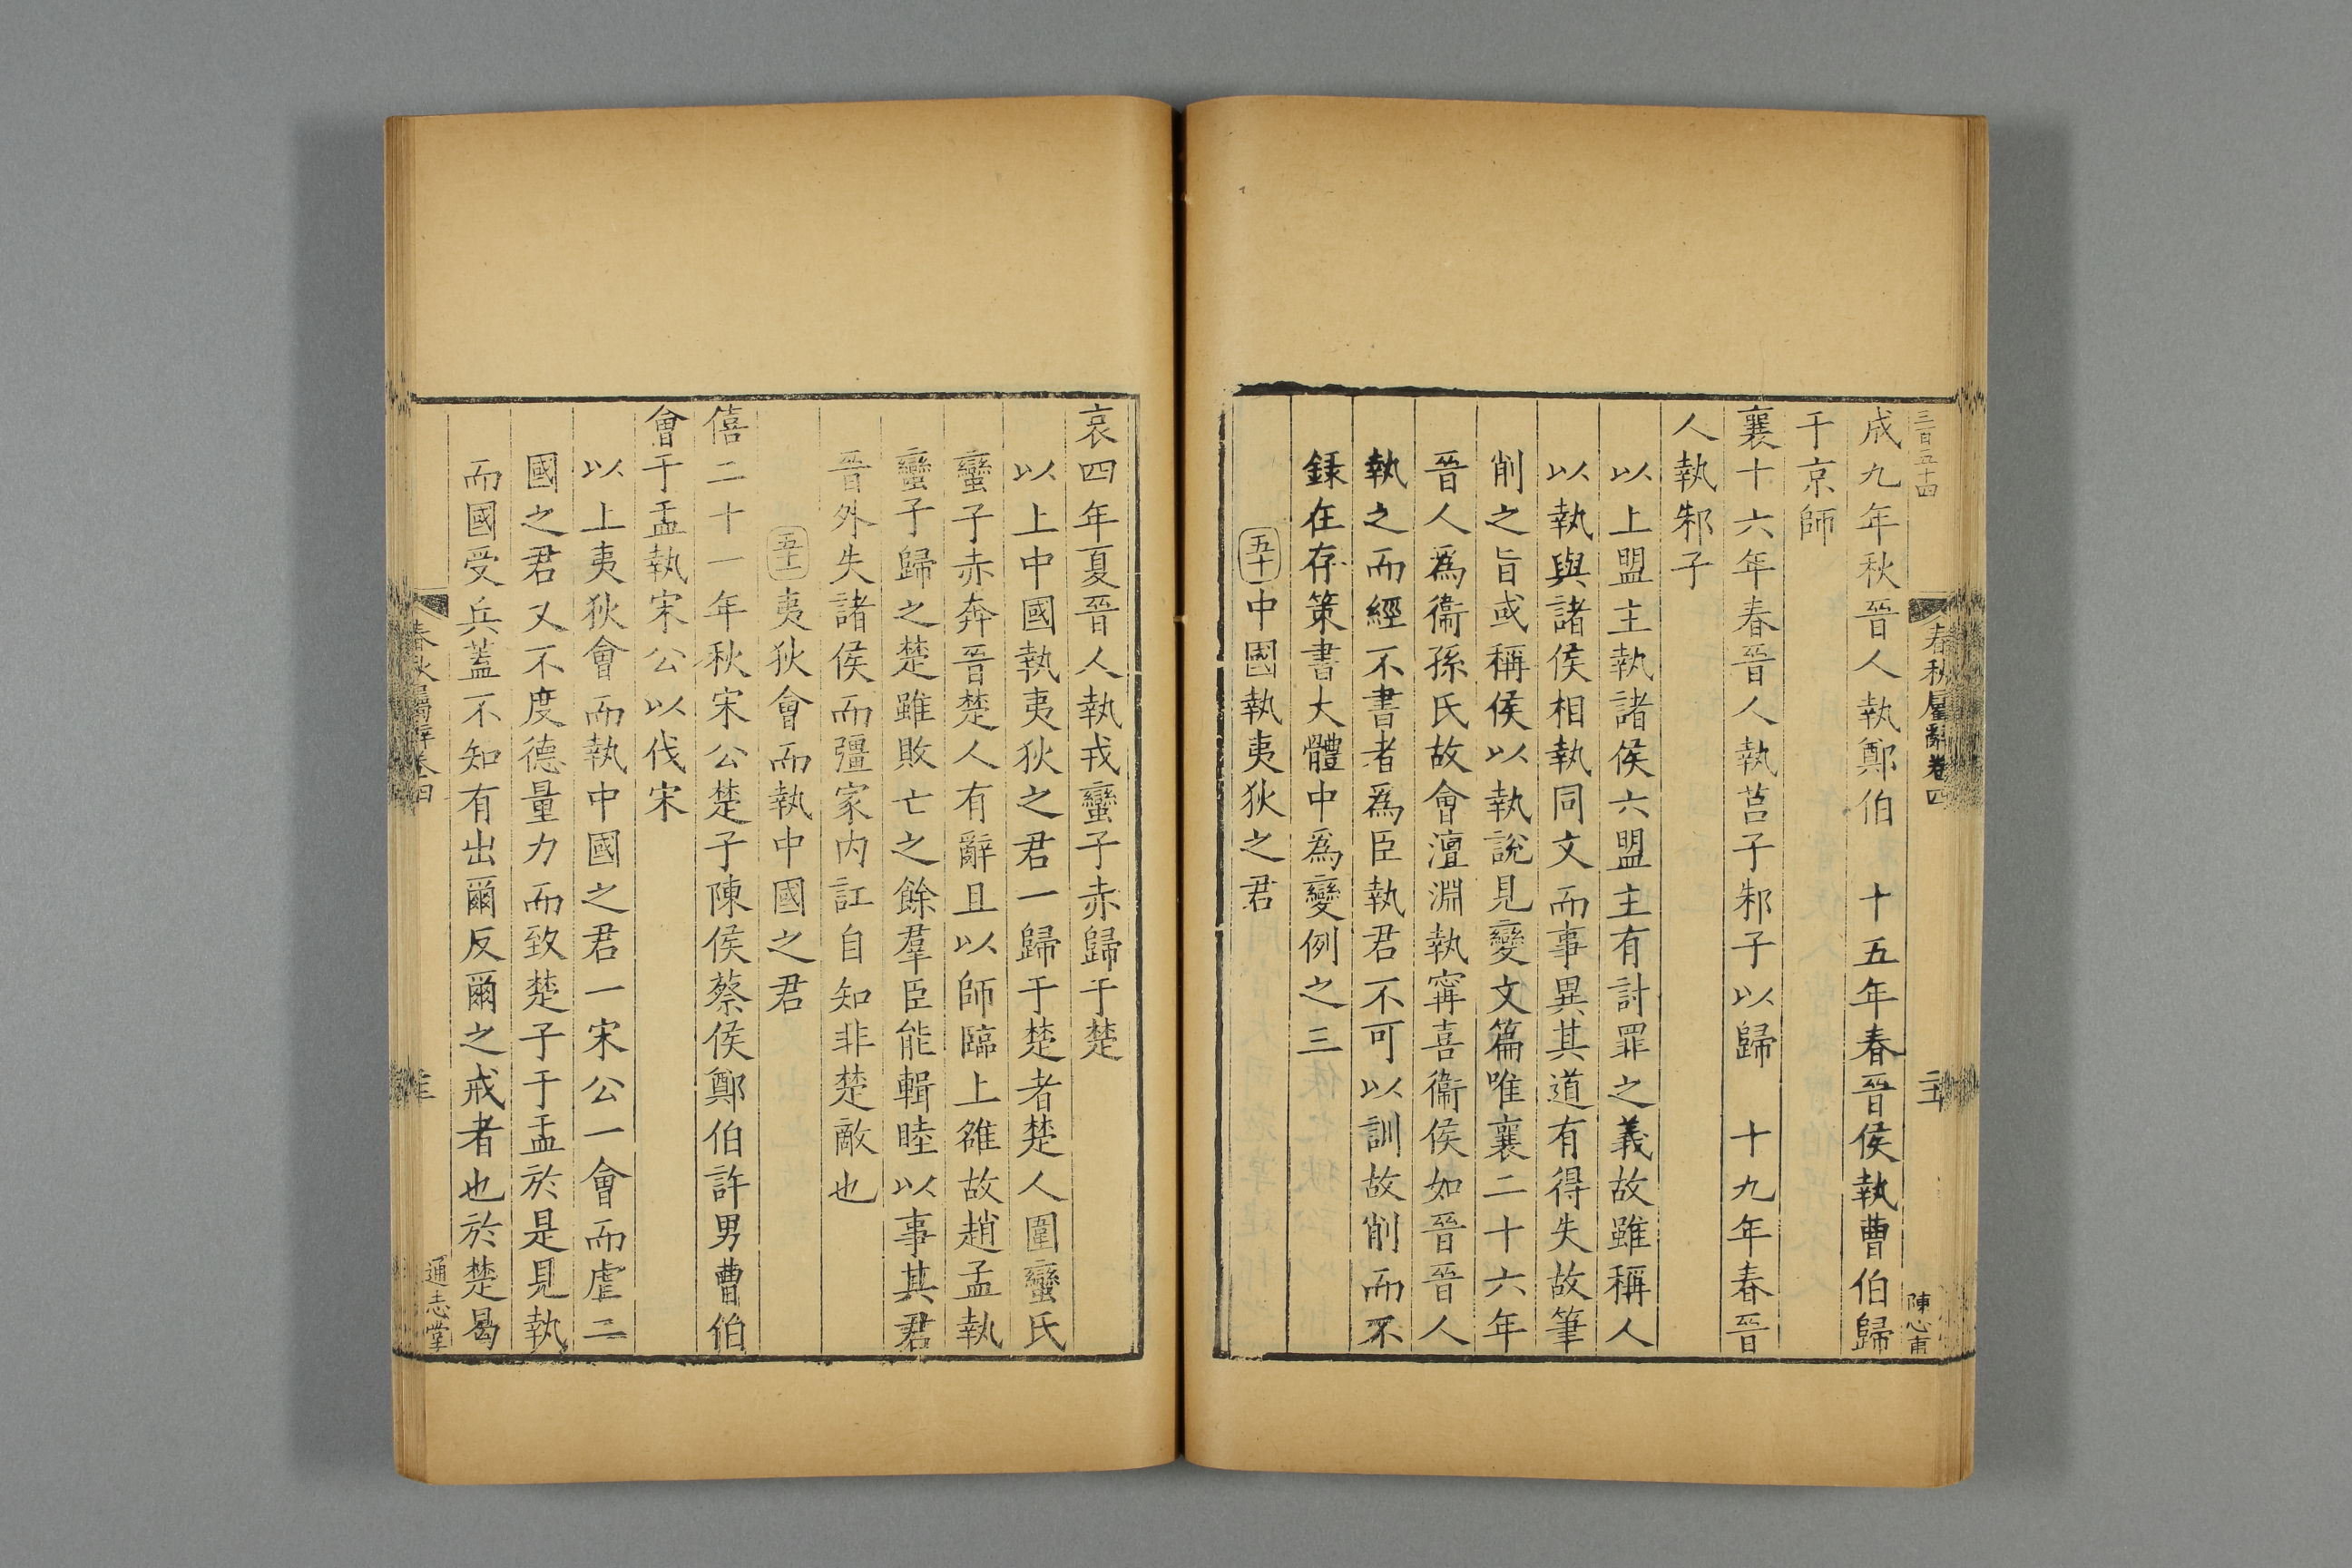 三百五十四
春秋屬辭卷四
陳心甫
成九年秋晉人執鄭伯　十五年春晉侯執曹伯歸
于京師
襄十六年春晉人執莒子邾子以歸　十九年春晉
人執邾子
以上盟主執諸侯六盟主有討罪之義故雖稱人
以執與諸侯相執同文而事異其道有得失故筆
削之旨或稱侯以執說見變文篇唯襄二十六年
晉人爲衞孫氏故會澶淵執甯喜衞侯如晉晉人
執之而經不書者爲臣執君不可以訓故削而不
錄在存策書大體中爲變例之三
五十中國執夷狄之君
哀四年夏晉人執戎蠻子赤歸于楚
以上中國執夷狄之君一歸于楚者楚人圍蠻氏
蠻子赤奔晉楚人有辭且以師臨上雒故趙孟執
蠻子歸之楚雖敗亡之餘羣臣能輯睦以事其君
晉外失諸侯而彊家內訌自知非楚敵也
五十一夷狄會而執中國之君
僖二十一年秋宋公楚子陳侯蔡侯鄭伯許男曹伯
會于盂執宋公以伐宋
以上夷狄會而執中國之君一宋公一會而虐二
國之君又不度德量力而致楚子于盂於是見執
而國受兵蓋不知有出爾反爾之戒者也於楚曷
春秋屬辭卷四
通志堂